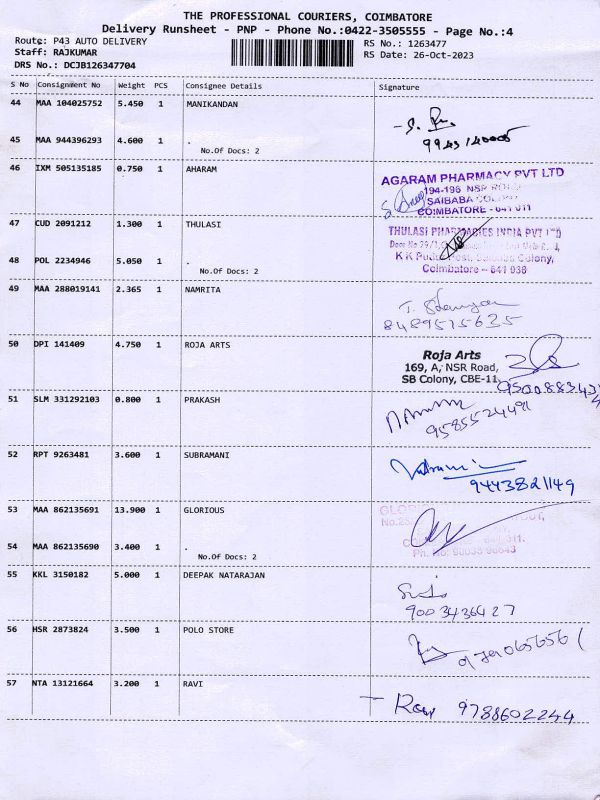 THE PROFESSIONAL COURIERS, COIMBATORE
Delivery Runsheet - PNP - Phone No.:0422-3505555 - Page No.:4
Route: P43 AUTO DELIVERY
RS No.: 1263477
Staff: RAJKUMAR
RS Date: 26-Oct-2023
DRS No.: DCJB126347704
S No Consignment No Weight PCS Consignee Details Signature
44 MAA 104025752 5.450 1 MANIKANDAN
45 MAA 944396293 4.600 1 .
No.Of Docs: 2
46 IXM 505135185 0.750 1 AHARAM
AGARAM PHARMACY PVT LTD
194-196 NSR
SAIBABA
COIMBATORE - 641 011
47 CUD 2091212 1.300 1 THULASI
THULASI PHARMACIES INDIA PVT LTD
48 POL 2234946 5.050 1 .
K K Colony,
No.Of Docs: 2
Coimbatore - 641 038
49 MAA 288019141 2.365 1 NAMRITA
8489515635
50 DPI 141409 4.750 1 ROJA ARTS
Roja Arts
169, A, NSR Road,
SB Colony, CBE-11.
51 SLM 331292103 0.800 1 PRAKASH
9585524491
52 RPT 9263481 3.600 1 SUBRAMANI
9443821149
53 MAA 862135691 13.900 1 GLORIOUS
54 MAA 862135690 3.400 1 .
No.Of Docs: 2
55 KKL 3150182 5.000 1 DEEPAK NATARAJAN
9003436427
56 HSR 2873824 3.500 1 POLO STORE
57 NTA 13121664 3.200 1 RAVI
- Ravi 9788602244